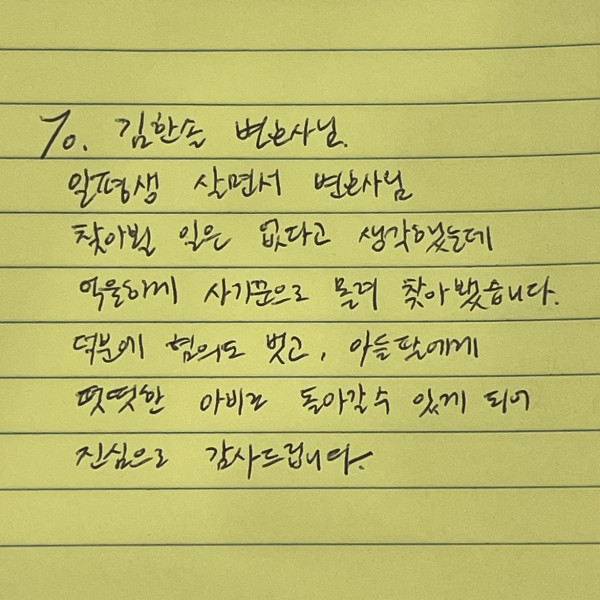 To. 김한솔 변호사님.
일평생 살면서 변호사님
찾아뵐 일은 없다고 생각했는데
억울하게 사기꾼으로 몰려 찾아뵀습니다.
덕분에 혐의도 벗고, 아들딸에게
떳떳한 아비로 돌아갈 수 있게 되어
진심으로 감사드립니다.